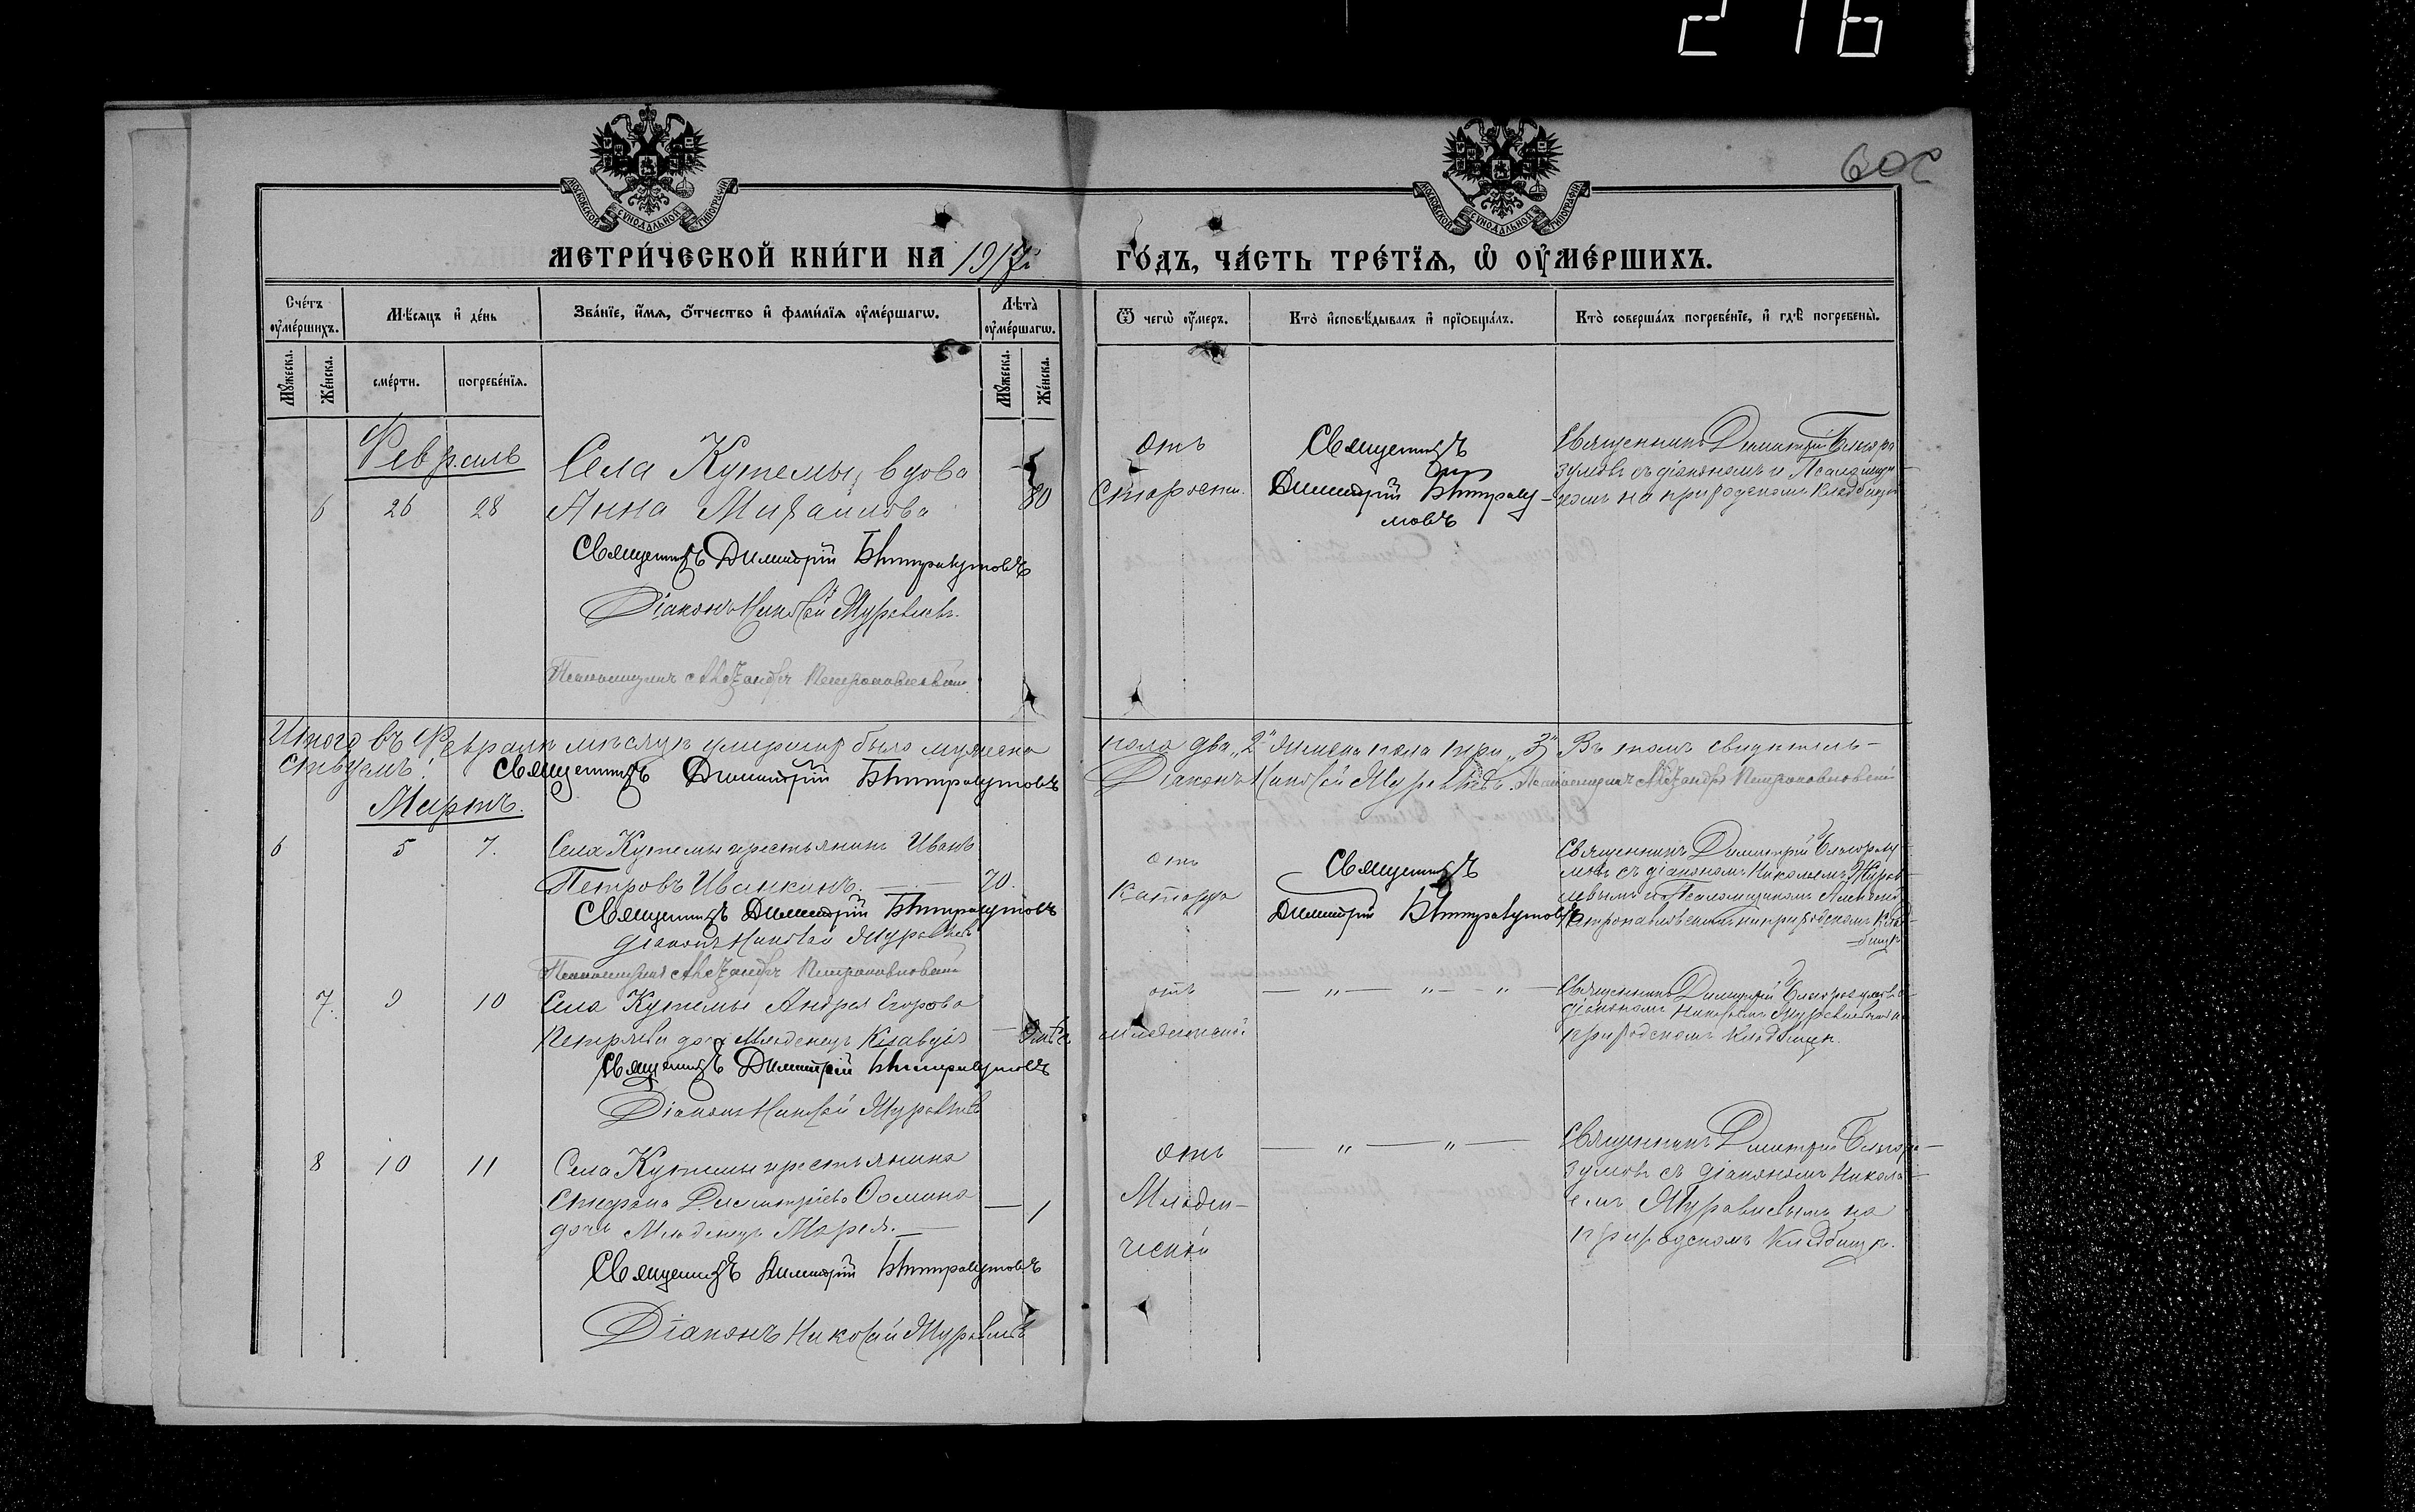 216
602
МОСКОВСКОЙ СУНОДАЛЬНОЙ ТИПОГРАФИИ
МОСКОВСКОЙ СУНОДАЛЬНОЙ ТИПОГРАФИИ
МЕТРИ́ЧЕСКОЙ КНИ́ГИ НА 1917й
ГО́ДЪ, ЧА́СТЬ ТРЕ́ТЇѦ, Ѡ҆ ОУ҆МЕ́РШИХЪ.
Сче́тъ оу҆ме́ршихъ.
Мѣ́сяцъ и҆ де́нь
Зва́нїе, и҆́мѧ, о҆́тчество и҆ фами́лїѧ оу҆ме́ршагѡ.
Лѣ́та оу҆ме́ршагѡ.
Ѿ чегѡ̀ оу҆́меръ.
Кто̀ и҆сповѣ́дывалъ и҆ прїѡбща́лъ.
Кто̀ соверша́лъ погребе́нїе, и҆ гдѣ̀ погребены̀.
Мꙋ́жеска.
Же́нска.
сме́рти.
погребе́нїѧ.
Мꙋ́жеска.
Же́нска.
Февраль
Села Кутемы, вдова
6 26 28 Анна Михаилова 80
Священникъ Димитрій Благоразумовъ
Діаконъ Николай Муравьевъ.
Псаломщикъ Александръ Петропавловскій
отъ
старости.
Священникъ
Димитрій Благоразу-
мовъ
Священникъ Димитрій Благора
зумовъ съ діакономъ и Псаломщи-
комъ на приходскомъ кладбищѣ
Итого въ Февралѣ мѣсяцѣ умершихъ было мужеска
пола два „2“ женска пола три „3“ Въ томъ свидѣтель-
ствуемъ:
Священникъ Димитрій Благоразумовъ
Діаконъ Николай Муравьевъ. Псаломщикъ Александръ Петропавловскій
Мартъ.
6 5 7. Села Кутемы крестьянинъ Иванъ
Петровъ Иванкинъ. — 70.
Священникъ Димитрій Благоразумовъ
діаконъ Николай Муравьевъ
Псаломщикъ Александръ Петропавловскій
отъ
катарра
Священникъ
Димитрій Благоразумовъ
Священникъ Димитрій Благоразу-
мовъ съ діакономъ Николаемъ Мурав-
ьевымъ и Псаломщикомъ Александ
Петропавловскимъ на приходскомъ клад-
бищѣ
7. 9 10 Села Кутемы Андрея Егорова
дочь Младенецъ Клавдія
Священникъ Димитрій Благоразумовъ
Діаконъ Николай Муравьевъ
отъ
младенческой
— „ — „ — „ —
Священникъ Димитрій Благоразумовъ съ
діакономъ Николаемъ Муравьевымъ на
приходскомъ кладбищѣ.
8 10 11 Села Кутемы крестьянина
Стефана Димитріева Фомина
дочь Младенецъ Марія. — 1
Священникъ Димитрій Благоразумовъ
Діаконъ Николай Муравьевъ
отъ
Младен-
ческой
— „ — „ —
Священникъ Димитрій Благора-
зумовъ съ діакономъ Никола-
емъ Муравьевымъ на
приходскомъ кладбищѣ.